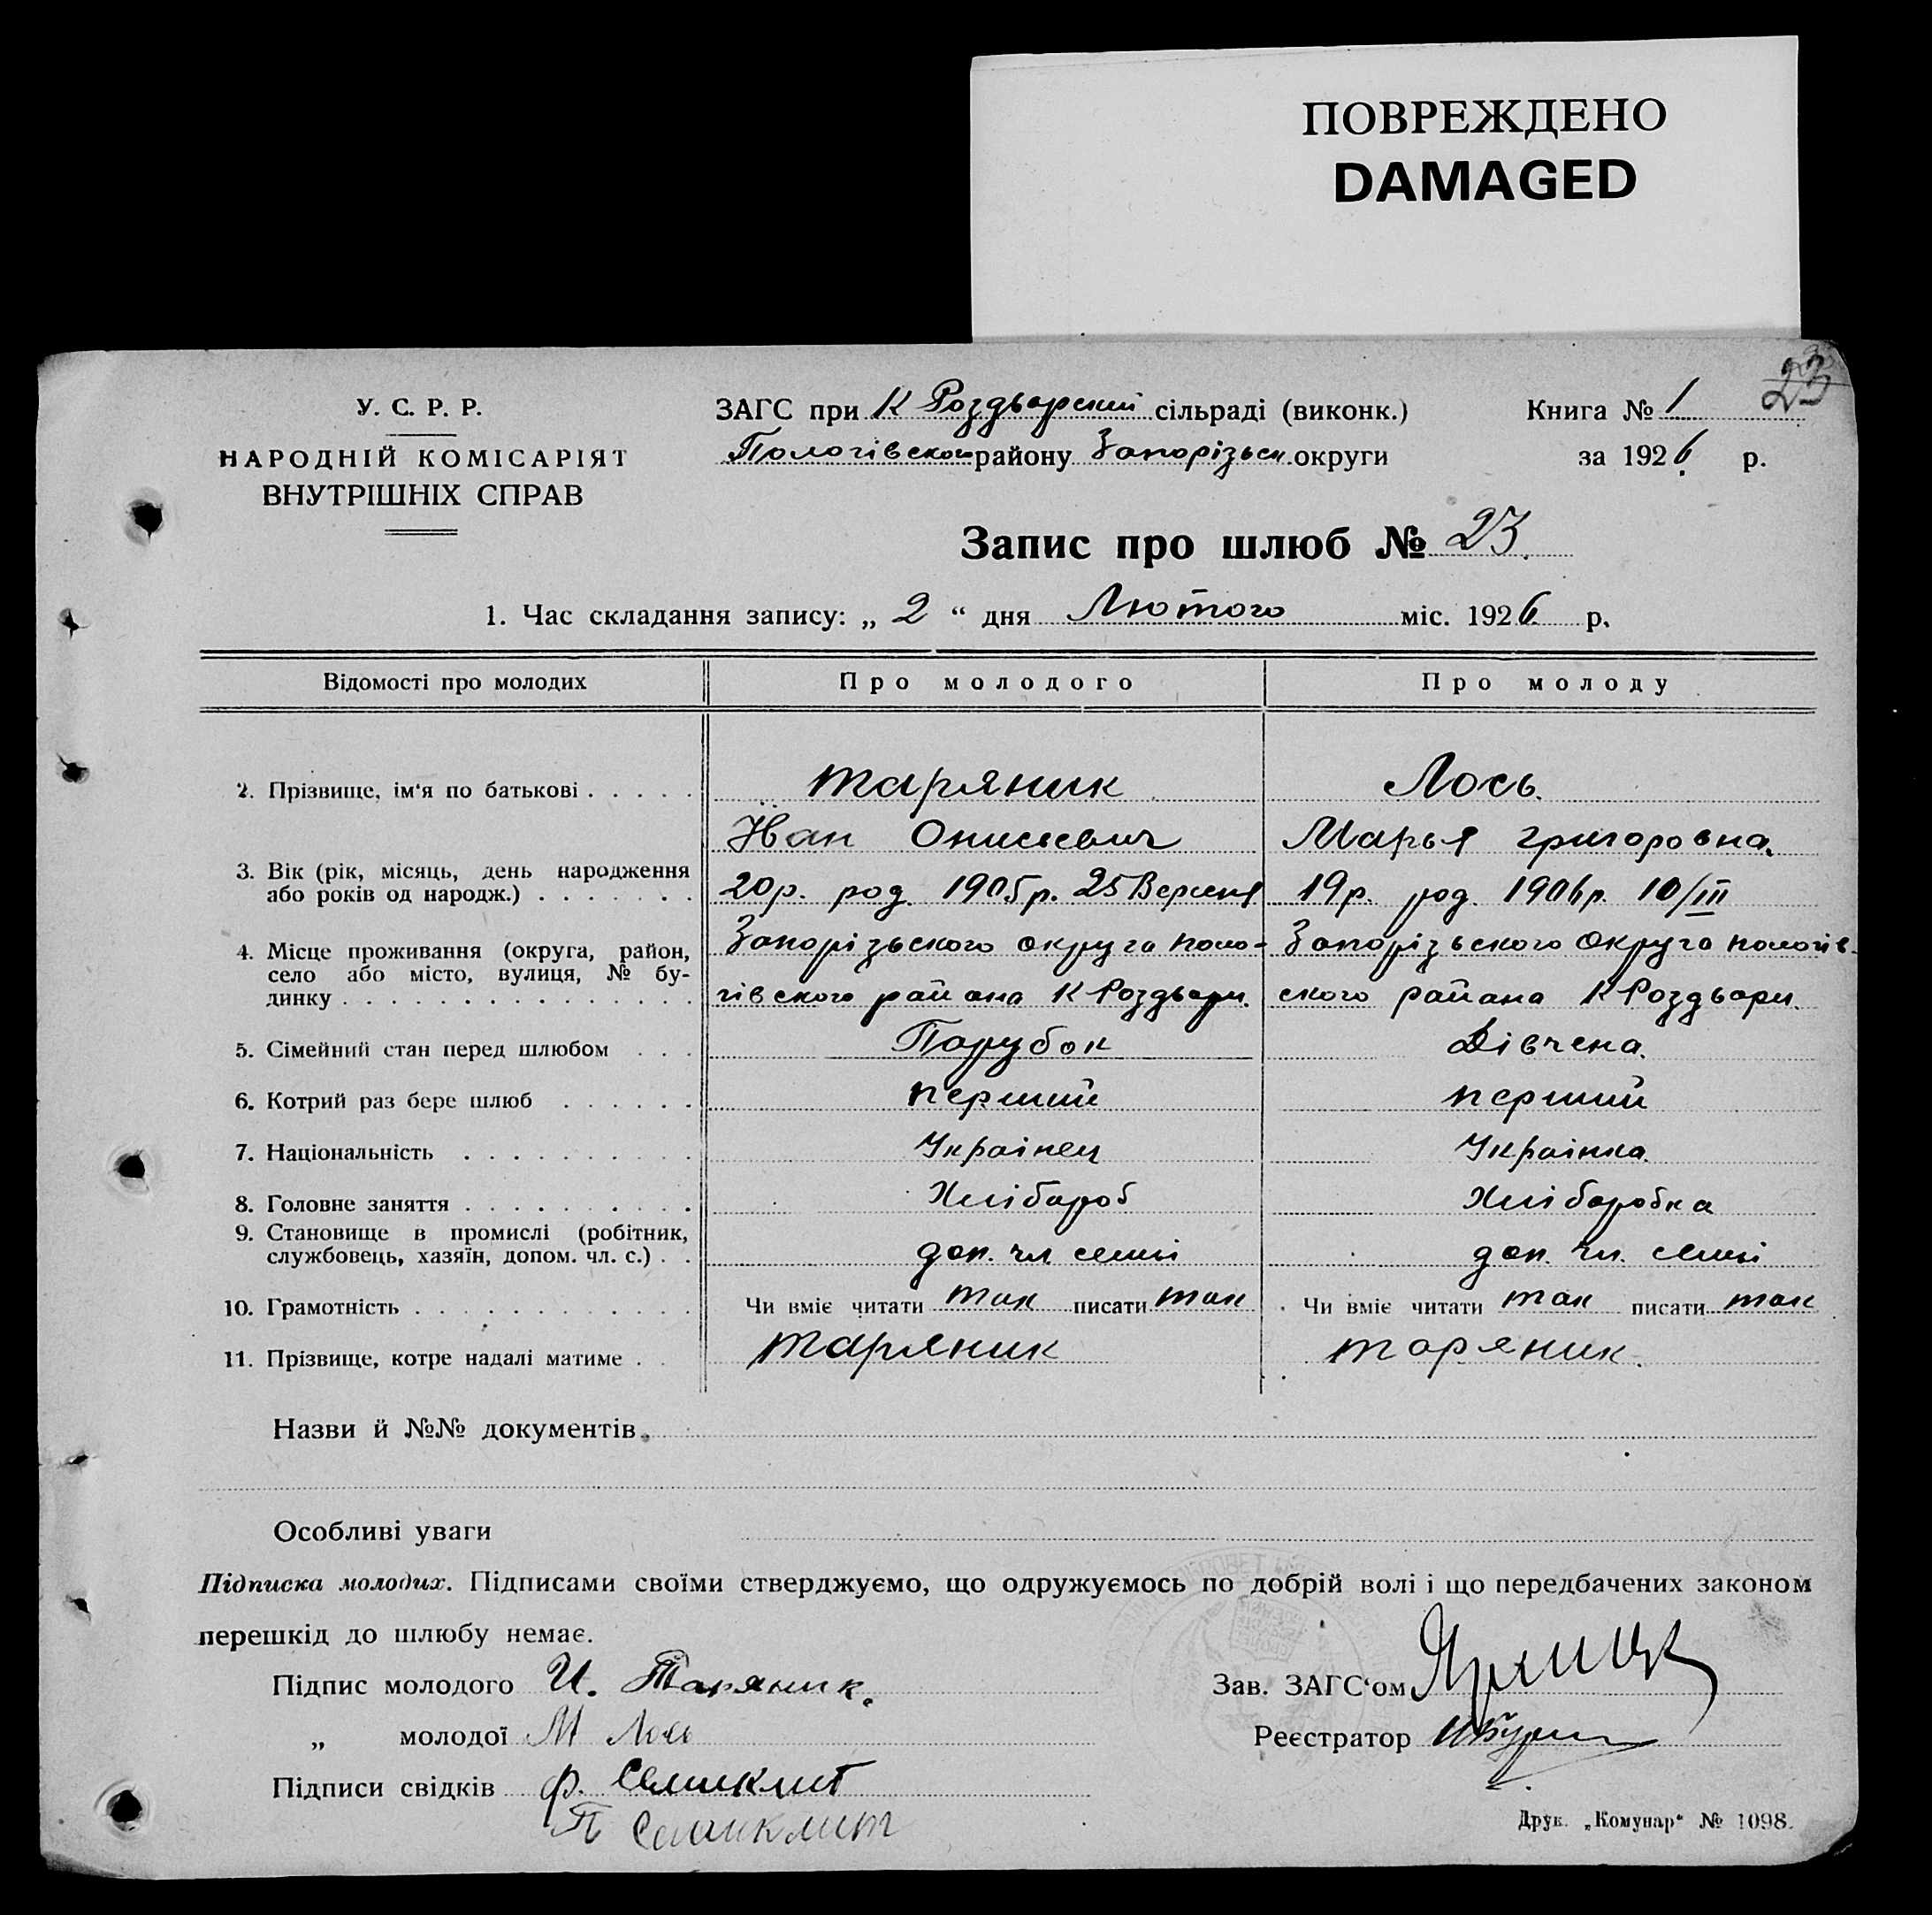 ПОВРЕЖДЕНО
DAMAGED
23
У. С. Р. Р.
НАРОДНІЙ КОМІСАРІЯТ
ВНУТРІШНІХ СПРАВ
ЗАГС при К Роздворский сільраді (виконк.)
Пологівского району Запорізьк. округи
Книга № 1
за 1926 р.
Запис про шлюб № 23.
1. Час складання запису: „ 2 “ дня Лютого міс. 1926 р.
Відомості про молодих Про молодого Про молоду
2. Прізвище, ім‘я по батькові . . . . . Таряник Лось.
Йван Онисьевич Марья григоровна.
3. Вік (рік, місяць, день народження
або років од народж.) . . . . . . . 20р. род. 1905р. 25 Вересня 19р. род. 1906р. 10/III
4. Місце проживання (округа, район, Запорізьского округа поло- Запорізьского округа пологів-
село або місто, вулиця, № бу-
динку . . . . . . . . . . . . . . . гівского района К Роздвори. ского района К Роздвори.
5. Сімейний стан перед шлюбом . . . Парубок Дівчена.
6. Котрий раз бере шлюб . . . . . . перший перший
7. Національність . . . . . . . . . . Украінец Украінка.
8. Головне заняття . . . . . . . . . . Хлібороб Хліборобка
9. Становище в промислі (робітник,
службовець, хазяїн, допом. чл. с.) . . доп. чл. семьі доп. чл. семьі
10. Грамотність . . . . . . . . . . . . Чи вміє читати так писати так Чи вміє читати так писати так
11. Прізвище, котре надалі матиме . . Таряник Таряник.
Назви й №№ документів
Особливі уваги
Підписка молодих. Підписами своїми стверджуємо, що одружуємось по добрій волі і що передбачених законом
перешкід до шлюбу немає.
Підпис молодого И. Таряник.
„ молодої М Лось
Підписи свідків Ф. Селиклит
П Селиклит
Зав. ЗАГС‘ом
Реєстратор
Друк. „Комунар“ № 1098.